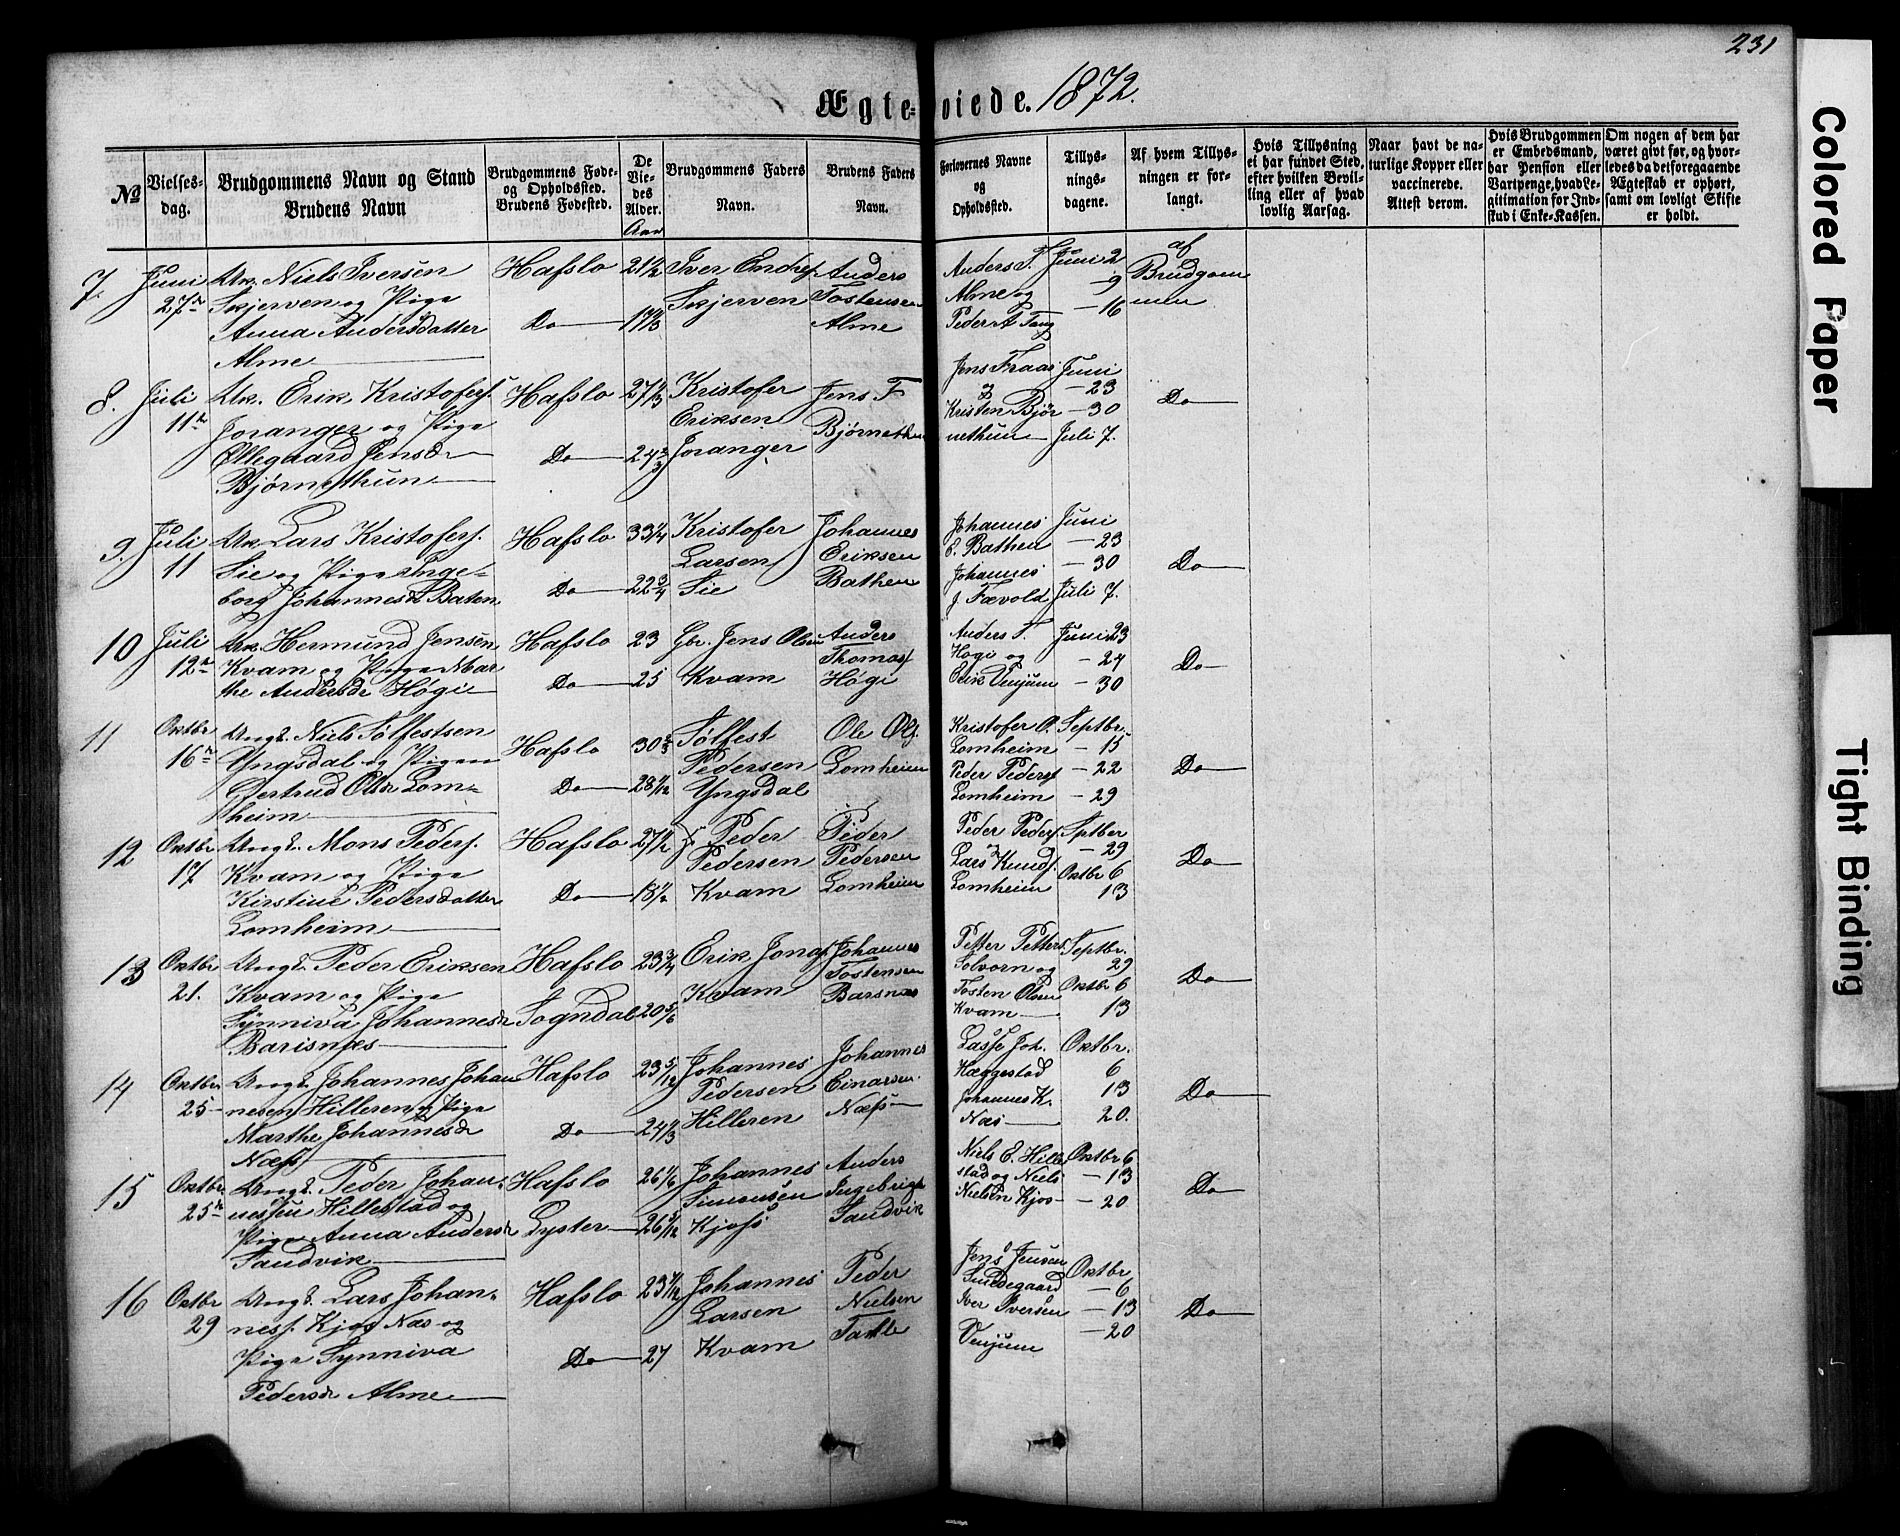 231
Ægte=viede. 1872.
No
Vielses-
dag.
Brudgommens Navn og Stand
Brudens Navn
Brudgommens Føde-
og Opholdssted.
Brudens Fødested.
De
Vie-
des
Alder.
Aar
Brudgommens Faders
Navn.
Brudens Faders
Navn.
Forlovernes Navne
og
Opholdssted.
Tillys-
nings-
dagene.
Af hvem Tillys-
ningen er for-
langt.
Hvis Tillysning
ei har fundet Sted,
efter hvilken Bevil-
ling eller af hvad
lovlig Aarsag.
Naar havt de na-
turlige Kopper eller
vaccinerede.
Attest derom.
Hvis Brudgommen
er Embedsmand,
har Pension eller
Vartpenge, hvad Le-
gitimation for Ind-
skud i Enke-Kassen.
Om nogen af dem har
været givt før, og hvor-
ledes da det foregaaende
Ægteskab er ophørt,
samt om lovligt Skifte
er holdt.
7. Juni
27de
Uk. Niels Iversen
Skjerven og Pige
Anna Andersdatter
Alme
Hafslo
Do
21 1/2
17 1/3
Iver Endres
Skjerven
Anders
Tostensen
Alme
Anders T.
Alme og
Peder A Tang
Juni 2
- 9
- 16
af
Brudgom
men
8. Juli
11te
Uk. Erik Kristofers.
Joranger og Pige
Øllegaard Jensdr
Bjørnethun
Hafslo
Do
27 1/3
24 2/3
Kristofer
Eriksen
Joranger
Jens T
Bjørnethun
Jens Traas
og
Kristen Bjør
nethun
Juni
- 23
- 30
Juli 7.
Do
9. Juli
11
Uk Lars Kristofers.
Sie og Pige Inge-
borg Johannesdr Baten
Hafslo
Do
33 1/4
22 3/4
Kristofer
Larsen
Sie
Johannes
Eriksen
Bathen
Johannes
E. Bathen
Johannes
J. Fævold
Juni
- 23
- 30
Juli 7.
Do
10 Juli
12te
Uk. Hermund Jensen
Kvam og Pige Mar
the Andersdr Høgi
Hafslo
Do
23
25
Gbr. Jens Olsen
Kvam
Anders
Thomas
Høgi
Anders T.
Høgi og
Erik Venjum
Juni 23
- 24
- 30
Do
11 Oktbr
16de
Ungk. Niels Sølfestsen
Yngsdal og Pigen
Gertrud Olsdr Lom-
heim
Hafslo
Do
30 2/3
28 1/12
Sølfest
Pedersen
Yngsdal
Ole Ols.
Lomheim
Kristofer O.
Lomheim
Peder Peders
Lomheim
Septbr.
- 15
- 22
- 29
Do
12 Oktbr
17
Ungk. Mons Peders.
Kvam og Pige
Kirstine Pedersdatter
Lomheim
Hafslo
Do
27 1/2
18 1/2
Peder
Pedersen
Kvam
Peder
Pedersen
Lomheim
Peder Peders.
og
Lars Knuds.
Lomheim
Septber
- 29
Oktbr 6
13
Do
13 Oktbr
21.
Ungk. Peder Eriksen
Kvam og Pige
Synniva Johannesdr
Barisnæs
Hafslo
Sogndal
23 3/4
20 5/6
Erik Jonas
Kvam
Johannes
Tostensen
Barsnæs
Petter Petters.
Solvorn og
Tosten Olsen
Kvam
Septbr.
29
Oktbr 6
13
Do
14 Oktbr
25
Ungk. Johannes Johan
nesen Hilleren og Pige
Marthe Johannesdr
Næss
Hafslo
Do
23 5/12
24 1/3
Johannes
Pedersen
Hilleren
Johannes
Einarsen
Næss
Lasse Joh.
Hæggestad
Johannes K.
Næs
Oktbr.
6
13
20.
Do
15 Oktbr.
25de
Ungk. Peder Johan-
nessen Hillestad og
Pige Anna Andersdr
Sandvik
Hafslo
Lyster
26 1/6
26 5/12
Johannes
Simonsen
Kjoss
Anders
Ingebrigts
Sandvik
Niels E. Hille
stad og Niels
Nielsen Kjos
Oktbr 6
- 13
- 20
Do
16 Oktbr
29
Ungk. Lars Johan-
ness. Kjos Næs og
Pige Synniva
Pedersdr Alme
Hafslo
Do
23 7/12
27
Johannes
Larsen
Kvam
Peder
Nielsen
Tarle
Jens Jensen
Smedegaard
Iver Iversen
Venjum
Oktbr
- 6
- 13
- 20
Do
Colored Paper
Tight Binding